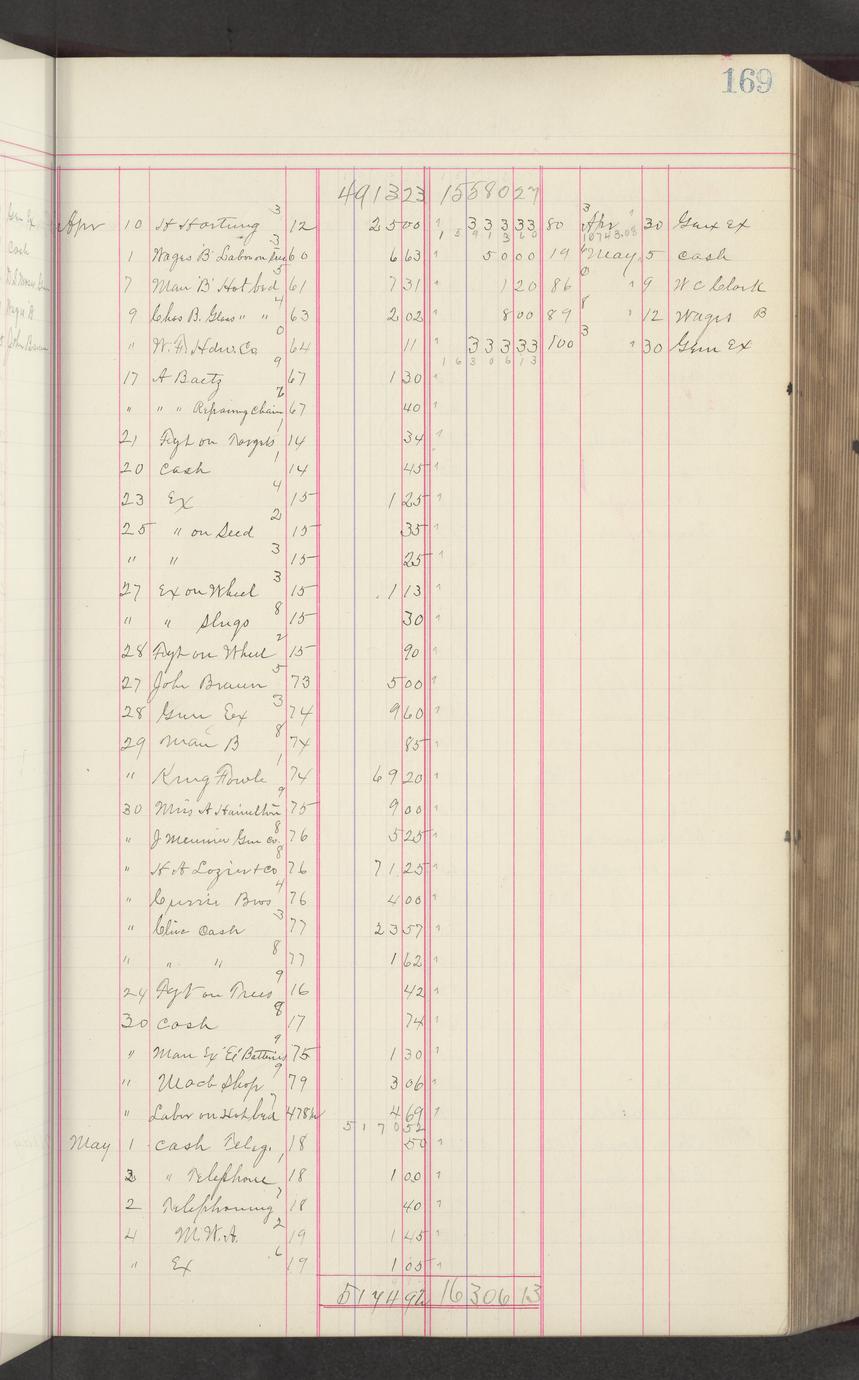 169
491323 1558027
Apr 10 H Hartung 3 12 2500 33333 80 3 Apr 30 Gen Ex
159136 0 10743.08
1 Wages "B" Labor on 3 60 663 5000 19 6 May 5 Cash
7 Man "B" Hot bed 5 61 731 120 86 0 " 9 W C Clark
9 Chas B. Glass " " 4 63 202 800 89 8 " 12 Wages B
" W. F. Hdw. Co. 0 64 11 33333 100 3 " 30 Gen Ex
1630613
17 A Baetz 9 67 130
" " " Repairing Chain 7 67 40
21 Fgt on Targets 1 14 34
20 Cash 1 14 45
23 Ex 4 15 125
25 " on Seed 2 15 35
" " 3 15 25
27 Ex on Wheel 3 15 113
" " Slugs 8 15 30
28 Fgt on Wheel 2 15 90
27 John Braun 5 73 500
28 Gen Ex 3 74 960
29 Man B 8 74 85
" King Fowle 1 74 6920
30 Mrs A Hamilton 9 75 900
" J Meunier Gun Co. 8 76 525
" H A Lozier & Co 8 76 7125
" Currie Bros 4 76 400
" Clive Cash 3 77 2357
" " " 8 77 162
24 Fgt on Trees 9 16 42
30 Cash 8 17 74
" Man Ex "Ex" Batteries 9 75 130
" Mach Shop 9 79 306
" Labor on Hotbed 7 478½ 469
517052
May 1 Cash Teleg. 18 50
2 " Telephone 1 18 100
2 Telephoning 7 18 40
4 M.W.A. 2 19 145
" Ex 6 19 105
517492 1630613